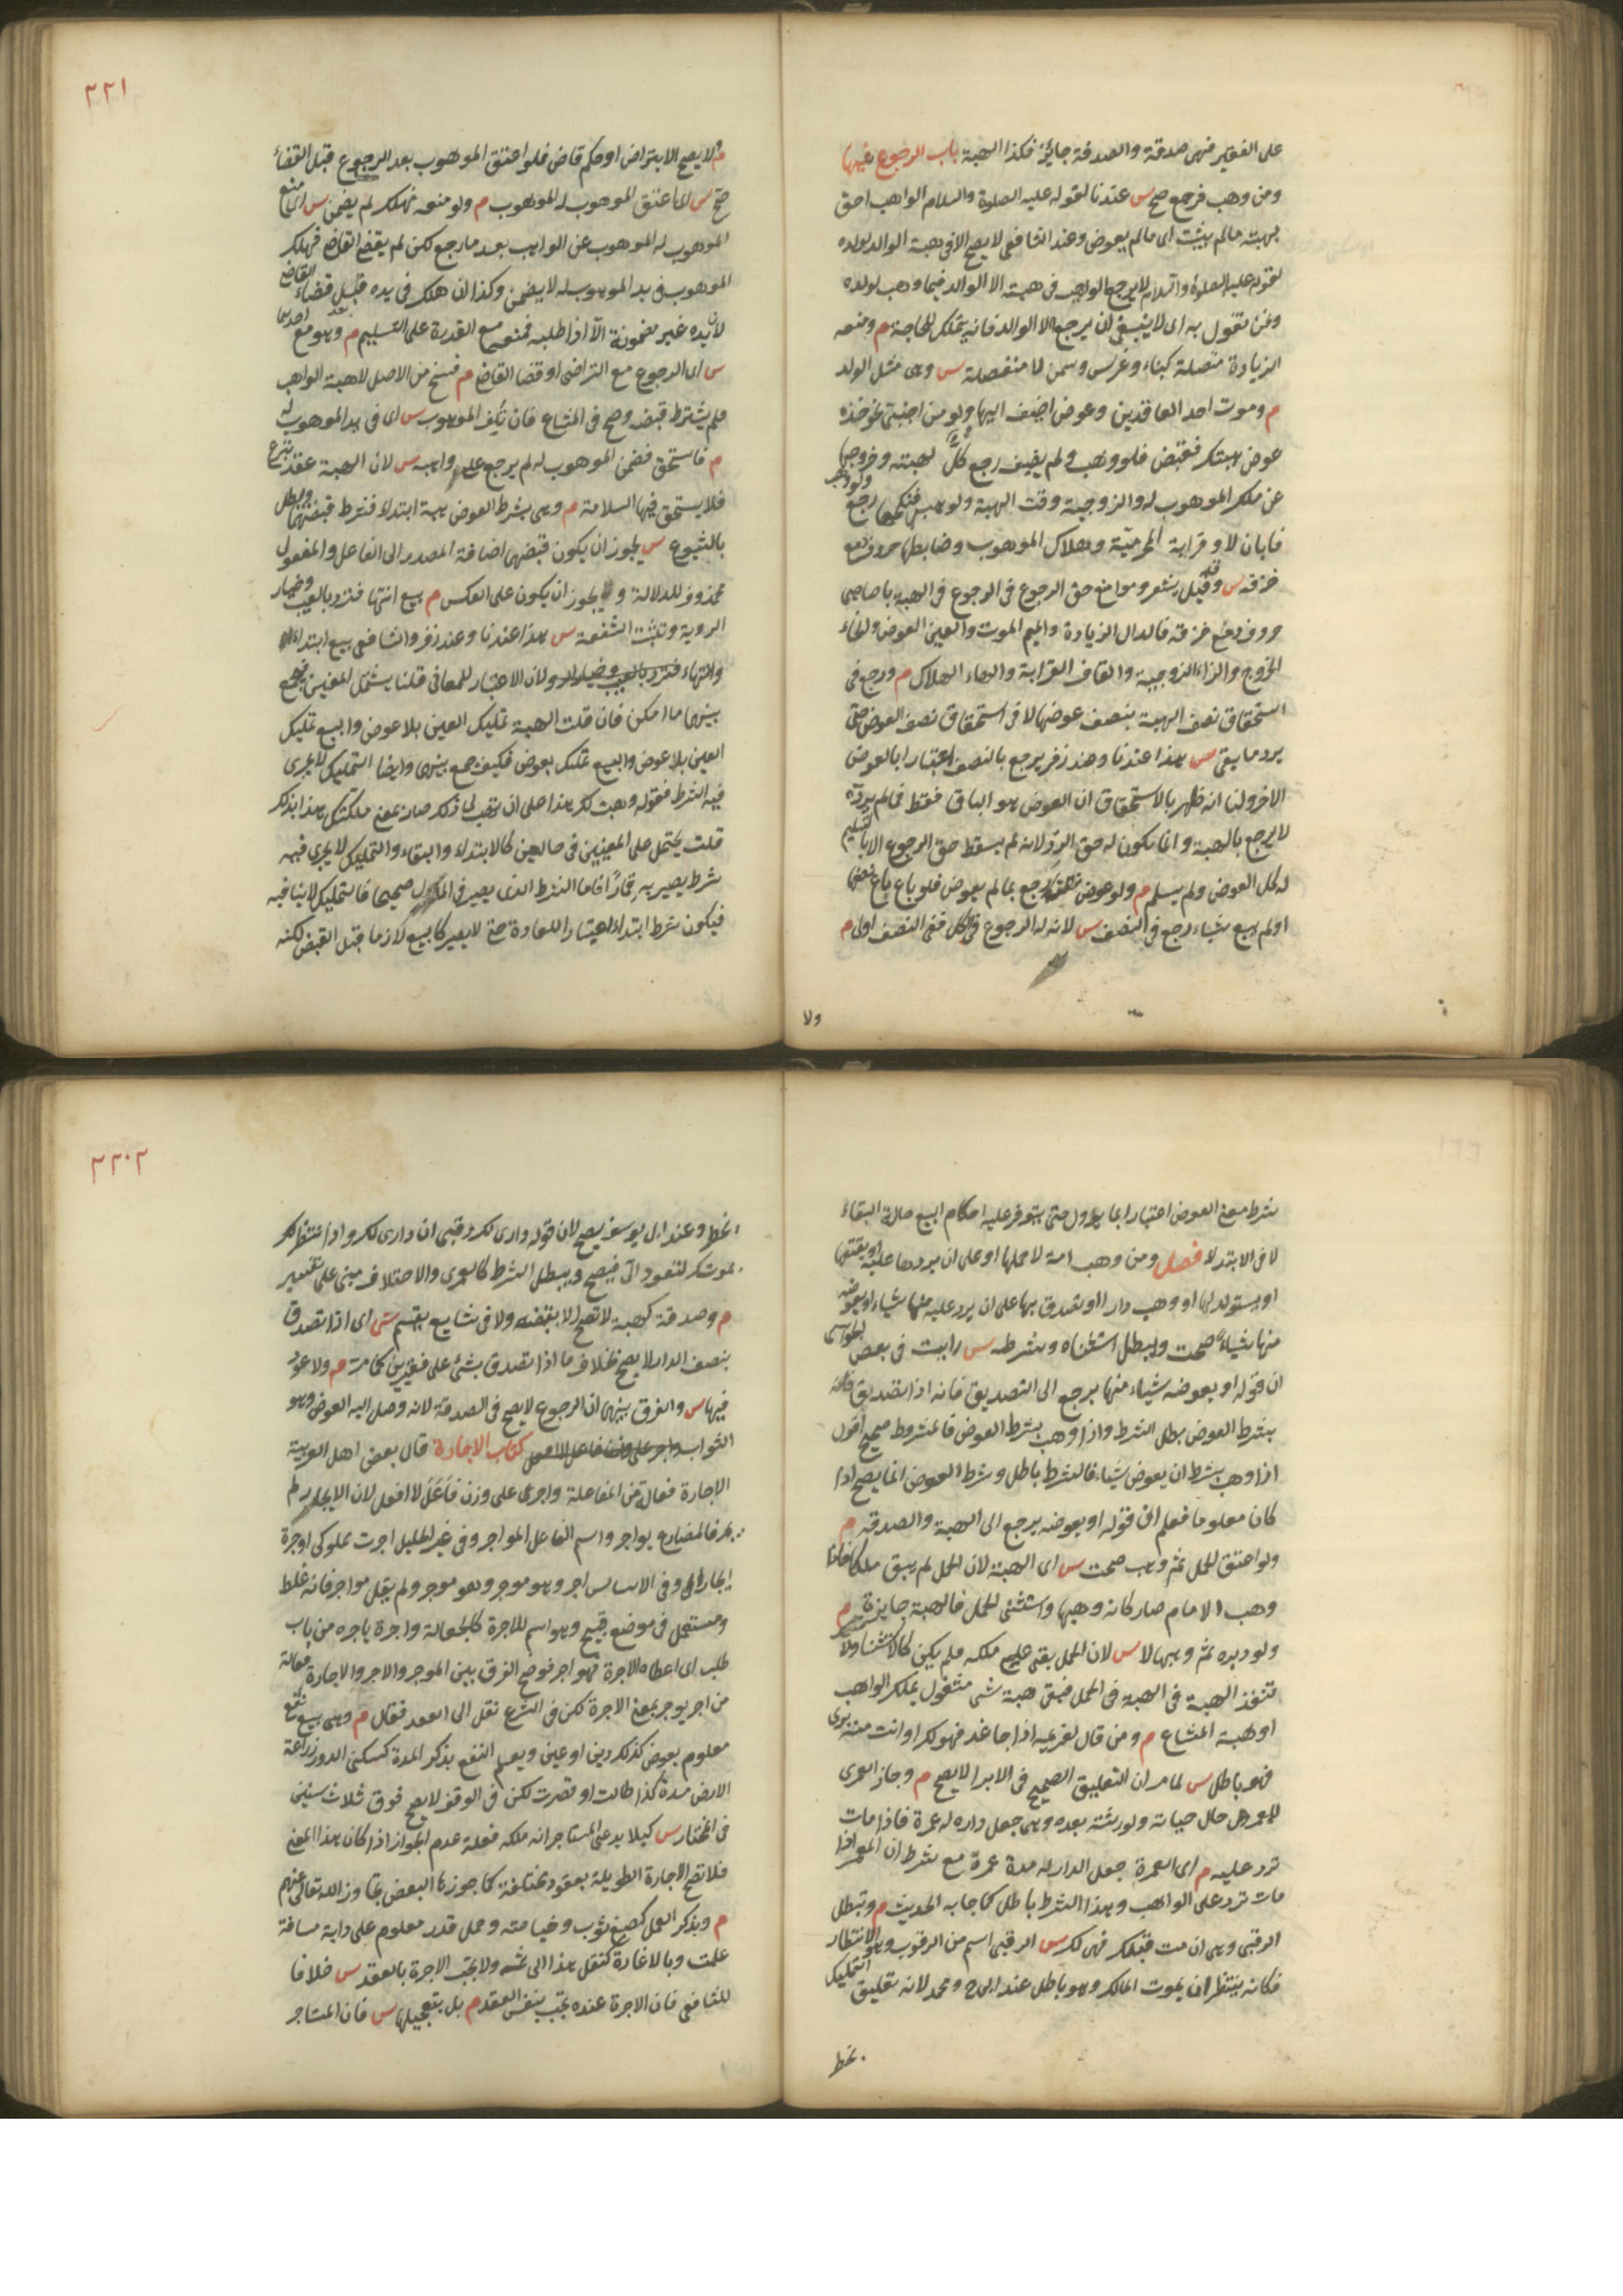 على الفقير فهى صدقة والصدقة جائزة فكذا الهبة باب الرجوع فيها
ومن وهب فرجع صح س عندنا لقوله عليه الصلوة والسلام الواهب احق
بهبته مالم يثب اى مالم يعوض وعند الشافعى لا يصح الا فى هبة الوالد لولده
لقوله عليه الصلوة والسلام لا يرجع الواهب فى هبته الا الوالد فيما وهب لولده
ونحن نقول به اى لا ينبغى ان يرجع الا الوالد فانه يتملك للحاجة م ومنعه
الزيادة متصلة كبناء وغرس وسمن لا منفصلة س وهى مثل الولد
م وموت احد العاقدين وعوض اضيف اليها ولو من اجنبى نحو خذه
عوض هبتك فقبض فلو وهب ولم يضف رجع كل لهبته وخروجها
عن ملك الموهوب له والزوجية وقت الهبة ولو وهب فنكحها رجع
فابان لا وقرابة المحرمية وهلاك الموهوب وضابطها حروف دمع
خزقه س وقيل شعر وموانع حق الرجوع فى الرجوع فى الهبة يا صاحبى
حروف دمع خزقه فالدال الزيادة والميم الموت والعين العوض والخاء
الخروج والزاء الزوجية والقاف القرابة والهاء الهلاك م ورجع فى
استحقاق نصف الهبة بنصف عوضها لا فى استحقاق نصف العوض حتى
يرد ما بقى س هذا عندنا وعند زفر يرجع بالنصف اعتبارا بالعوض
الاخر ولنا انه ظهر بالاستحقاق ان العوض هو الباقى فقط فما لم يرده
لا يرجع بالهبة وانما يكون له حق الرد لانه لم يسقط حق الرجوع الا بتسليم
له كل العوض ولم يسلم م ولو عوض نصفها رجع بما لم يعوض فلو باع نصفها
او لم يبع شياء رجع فى النصف س لان له الرجوع فى الكل ففى النصف اولى م
ولا
٢٢١
م ولا يصح الا بتراض او حكم قاض فلو اعتق الموهوب بعد الرجوع قبل القضاء
صح س اى اعتق الموهوب له الموهوب م ولو منعه فهلك لم يضمن س اى منع
الموهوب له الموهوب عن الواهب بعد ما رجع لكن لم يقض القاضى فهلك
الموهوب فى يد الموهوب له لا يضمن وكذا ان هلك فى يده قبل قضاء القاضى
لان يده غير مضمونة الا اذا طلبه فمنعه مع القدرة على التسليم م وهو مع احدهما
س اى الرجوع مع التراضى او قضا القاضى م فسخ من الاصل لا هبة الواهب
فلم يشترط قبضه وصح فى المشاع فان تلف الموهوب س اى فى يد الموهوب له
م فاستحق فضمن الموهوب له لم يرجع على واهبه س لان الهبة عقد تبرع
فلا يستحق فيها السلامة م وهى بشرط العوض هبة ابتداء فشرط قبضهما وبطل
بالشيوع س يجوز ان يكون قبضهما اضافة المصدر الى الفاعل والمفعول
محذوف للدلالة و يجوز ان يكون على العكس م بيع انتهاء فترد بالعيب وخيار
الروية وتثبت الشفعة س هذا عندنا وعند زفر والشافعى بيع ابتداء
وانتهاء لان الاعتبار للمعانى قلنا يشتمل المعنيين فيجمع
بينهما ما امكن فان قلت الهبة تمليك العين بلا عوض والبيع تمليك
العين بلا عوض والبيع تمليك بعوض فكيف جمع بينهما وايضا التمليك لا يجرى
فيه الشرط فقوله وهبت لك هذا على ان تهب لى ذلك صار بمعنى ملكتك هذا بذلك
قلت يحتمل على المعنيين فى حالين كالابتداء والبقاء والتمليك لا يجرى فيه
شرط يصير به قمارا فاما الشرط الذى يصير فى المآل صحيحا فالتمليك لا ينافيه
فيكون شرط ابتداء اعتبارا للعادة حتى لا يصير كالبيع لازما قبل القبض لكنه
شرط بمعنى العوض اعتبارا بما يؤول حتى يتوفر عليه احكام البيع حالة البقاء
لا فى الابتداء فصل ومن وهب امة لا حملها او على ان يردها عليه او يعتقها
او يستولدها او وهب دارا او تصدق بها على ان يرد عليه منها شياء او يعوضه
منها شياء صحت وبطل استثناه وشرطه س رايت فى بعض الحواشى
ان قوله او يعوضه شياء منها يرجع الى التصدق فانه اذا تصدق
بشرط العوض بطل الشرط واذا وهب بشرط العوض فالشروط صحيح اقول
اذا وهب بشرط ان يعوض شياء فالشرط باطل وشرط العوض انما يصح اذا
كان معلوما فعلم ان قوله او يعوضه يرجع الى الهبة والصدقة م
ولو اعتق الحمل ثم وهب صحت س اى الهبة لان الحمل لم يبق ملكا
وهب الامام صار كانه وهبها واستثنى الحمل فالهبة جايزة م
ولو دبره ثم وهبها لا س لان الحمل بقى على ملكه فلم يكن كالاستثناء ولا
تنفذ الهبة فى الهبة فى الحمل فبقى هبة شى مشغول بملك الواهب
او هبة المشاع م ومن قال لغريمه اذا جا غد فهو لك او انت منه برى
فهو باطل س لما مر ان التعليق الصحيح فى الابرا لا يصح م وجاز العمرى
للمعمر له حال حياته ولورثته بعده وهى جعل داره له عمره فاذا مات
ترد عليه م اى العمرة جعل الدار له مدة عمره مع شرط ان المعمر اذا
مات ترد على الواهب وهذا الشرط باطل كما جا به الحديث م وتبطل
الرقبى وهى ان مت قبلك فهى لك س الرقبى اسم من الرقوب وهو الانتظار
فكانه ينتظر ان يموت المالك وهو باطل عند ابى ح ومحمد لانه تعليق التمليك
بخطر
٢٢٠٢
بخطر وعند ابى يوسف يصح لان قوله دارى لك رقبى ان دارى لك وانا انتظر
موتك لتعود الى فيصح ويبطل الشرط كالعمرى والاختلاف مبنى على تفسير
م وصدقة كهبة لا تصح الا بقبضه ولا فى شايع يقسم س اى اذا تصدق
بنصف الدار لا يصح بخلاف ما اذا تصدق بشئ على فقيرين كما مر م ولا عود
فيها س والفرق بينهما ان الرجوع لا يصح فى الصدقة لانه وصل اليه العوض وهو
الثواب كتاب الاجارة قال بعض اهل العربية
الاجارة فعالة من المفاعلة واجر على وزن فاعل لا افعل لان الايجار لم
يجئ فالمضارع يواجر واسم الفاعل المواجر وفى عين الخليل اجرت مملوكى اوجره
ايجارا وفى الاساس اجر وهو موجر وهو موجر ولم يقل مواجر فانه غلط
ومستعمل فى موضع قبيح وهو اسم للاجرة كالجعالة واجره ياجره من باب
طلب اى اعطاه الاجرة فهو اجر فوضح الفرق بين الموجر والاجر والاجارة فعالة
من اجر يوجر بمعنى الاجرة لكن فى الشرع نقل الى العقد فقال م وهى بيع نفع
معلوم بعوض كذلك دين او عين ويعلم النفع بذكر المدة كسكنى الدور وزراعة
الارض مدة كذا طالت او قصرت لكن فى الوقف لا يصح فوق ثلاث سنين
فى المختار س كيلا يدعى المستاجر انه ملكه فعلة عدم الجواز اذا كان هذا المعنى
فلا تصح الاجارة الطويلة بعقود مختلفة كما جوزها البعض تجاوز الله تعالى عنهم
م وبذكر العمل كصبغ ثوب وخياطته وحمل قدر معلوم على دابة مسافة
علمت وبالاشارة كنقل هذا الى ثمه ولا تجب الاجرة بالعقد س خلافا
للشافعى فان الاجرة عنده تجب بنفس العقد م بل بتعجيلها س فان المستاجر